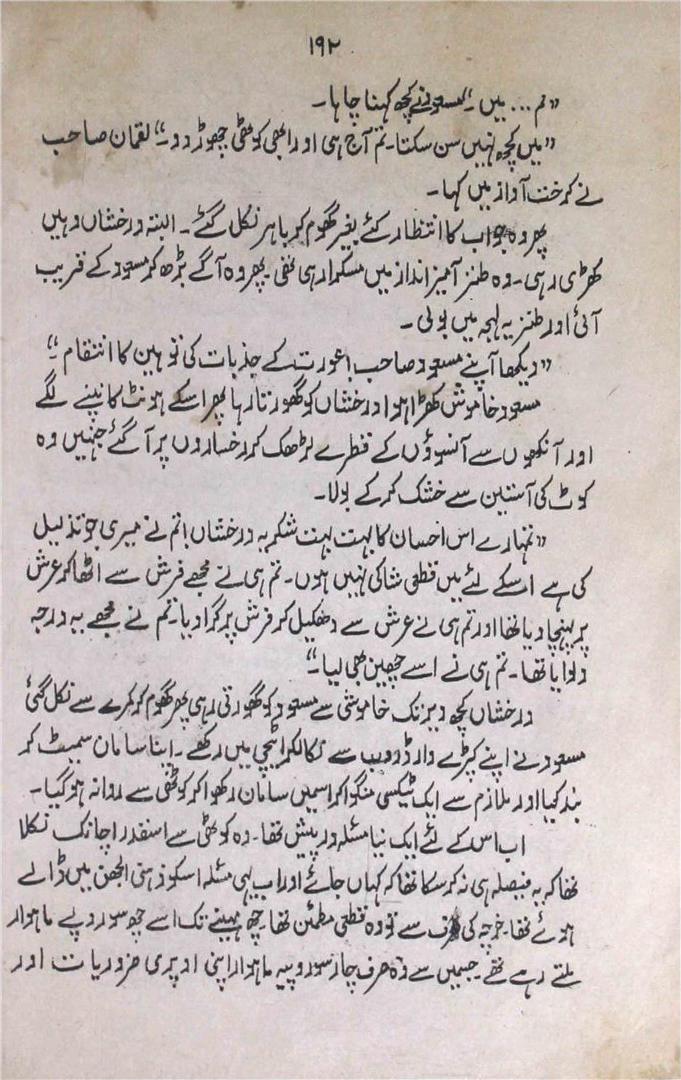 ۱۹۲
”تم... میں۔“ مسعود نے کچھ کہنا چاہا۔
”میں کچھ نہیں سن سکتا۔ تم آج ہی اور ابھی کوٹھی چھوڑ دو۔“ لقمان صاحب
نے کرخت آواز میں کہا۔
پھر وہ جواب کا انتظار کئے بغیر گھوم کر باہر نکل گئے۔ البتہ درخشاں وہیں
کھڑی رہی۔ وہ طنز آمیز انداز میں مسکرا رہی تھی۔ پھر وہ آگے بڑھ کر مسعود کے قریب
آئی اور طنزیہ لہجہ میں بولی۔
”دیکھا آپنے مسعود صاحب! عورت کے جذبات کی توہین کا انتقام۔“
مسعود خاموش کھڑا ہوا درخشاں کو گھورتا رہا پھر اسکے ہونٹ کانپنے لگے
اور آنکھوں سے آنسوؤں کے قطرے لڑھک کر رخساروں پر آ گئے جنہیں وہ
کوٹ کی آستین سے خشک کر کے بولا۔
”تمہارے اس احسان کا بہت بہت شکریہ درخشاں! تم نے میری جو تذلیل
کی ہے اسکے لئے میں قطعی شاکی نہیں ہوں۔ تم ہی نے مجھے فرش سے اٹھا کر عرش
پر پہنچا دیا تھا اور تم ہی نے عرش سے دھکیل کر فرش پر گرا دیا۔ تم نے مجھے یہ درجہ
دلوایا تھا۔ تم ہی نے اسے چھین بھی لیا۔“
درخشاں کچھ دیر تک خاموشی سے مسعود کو گھورتی رہی پھر گھوم کر کمرے سے نکل گئی
مسعود نے اپنے کپڑے وارڈروب سے نکالکر اٹیچی میں رکھے۔ اپنا سامان سمیٹ کر
بند کیا اور ملازم سے ایک ٹیکسی منگوا کر اسمیں سامان رکھوا کر کوٹھی سے روانہ ہو گیا۔
اب اس کے لئے ایک نیا مسئلہ درپیش تھا۔ وہ کوٹھی سے اسقدر اچانک نکلا
تھا کہ یہ فیصلہ ہی نہ کر سکا تھا کہ کہاں جائے اور اب یہی مسئلہ اسکو ذہنی الجھن میں ڈالے
ہوئے تھا۔ خرچہ کی طرف سے تو وہ قطعی مطمئن تھا۔ چھ مہینے تک اسے چھ سو روپے ماہوار
ملتے رہے تھے۔ جسمیں سے وہ صرف چار سو روپیہ ماہوار اپنی اوپری ضروریات اور